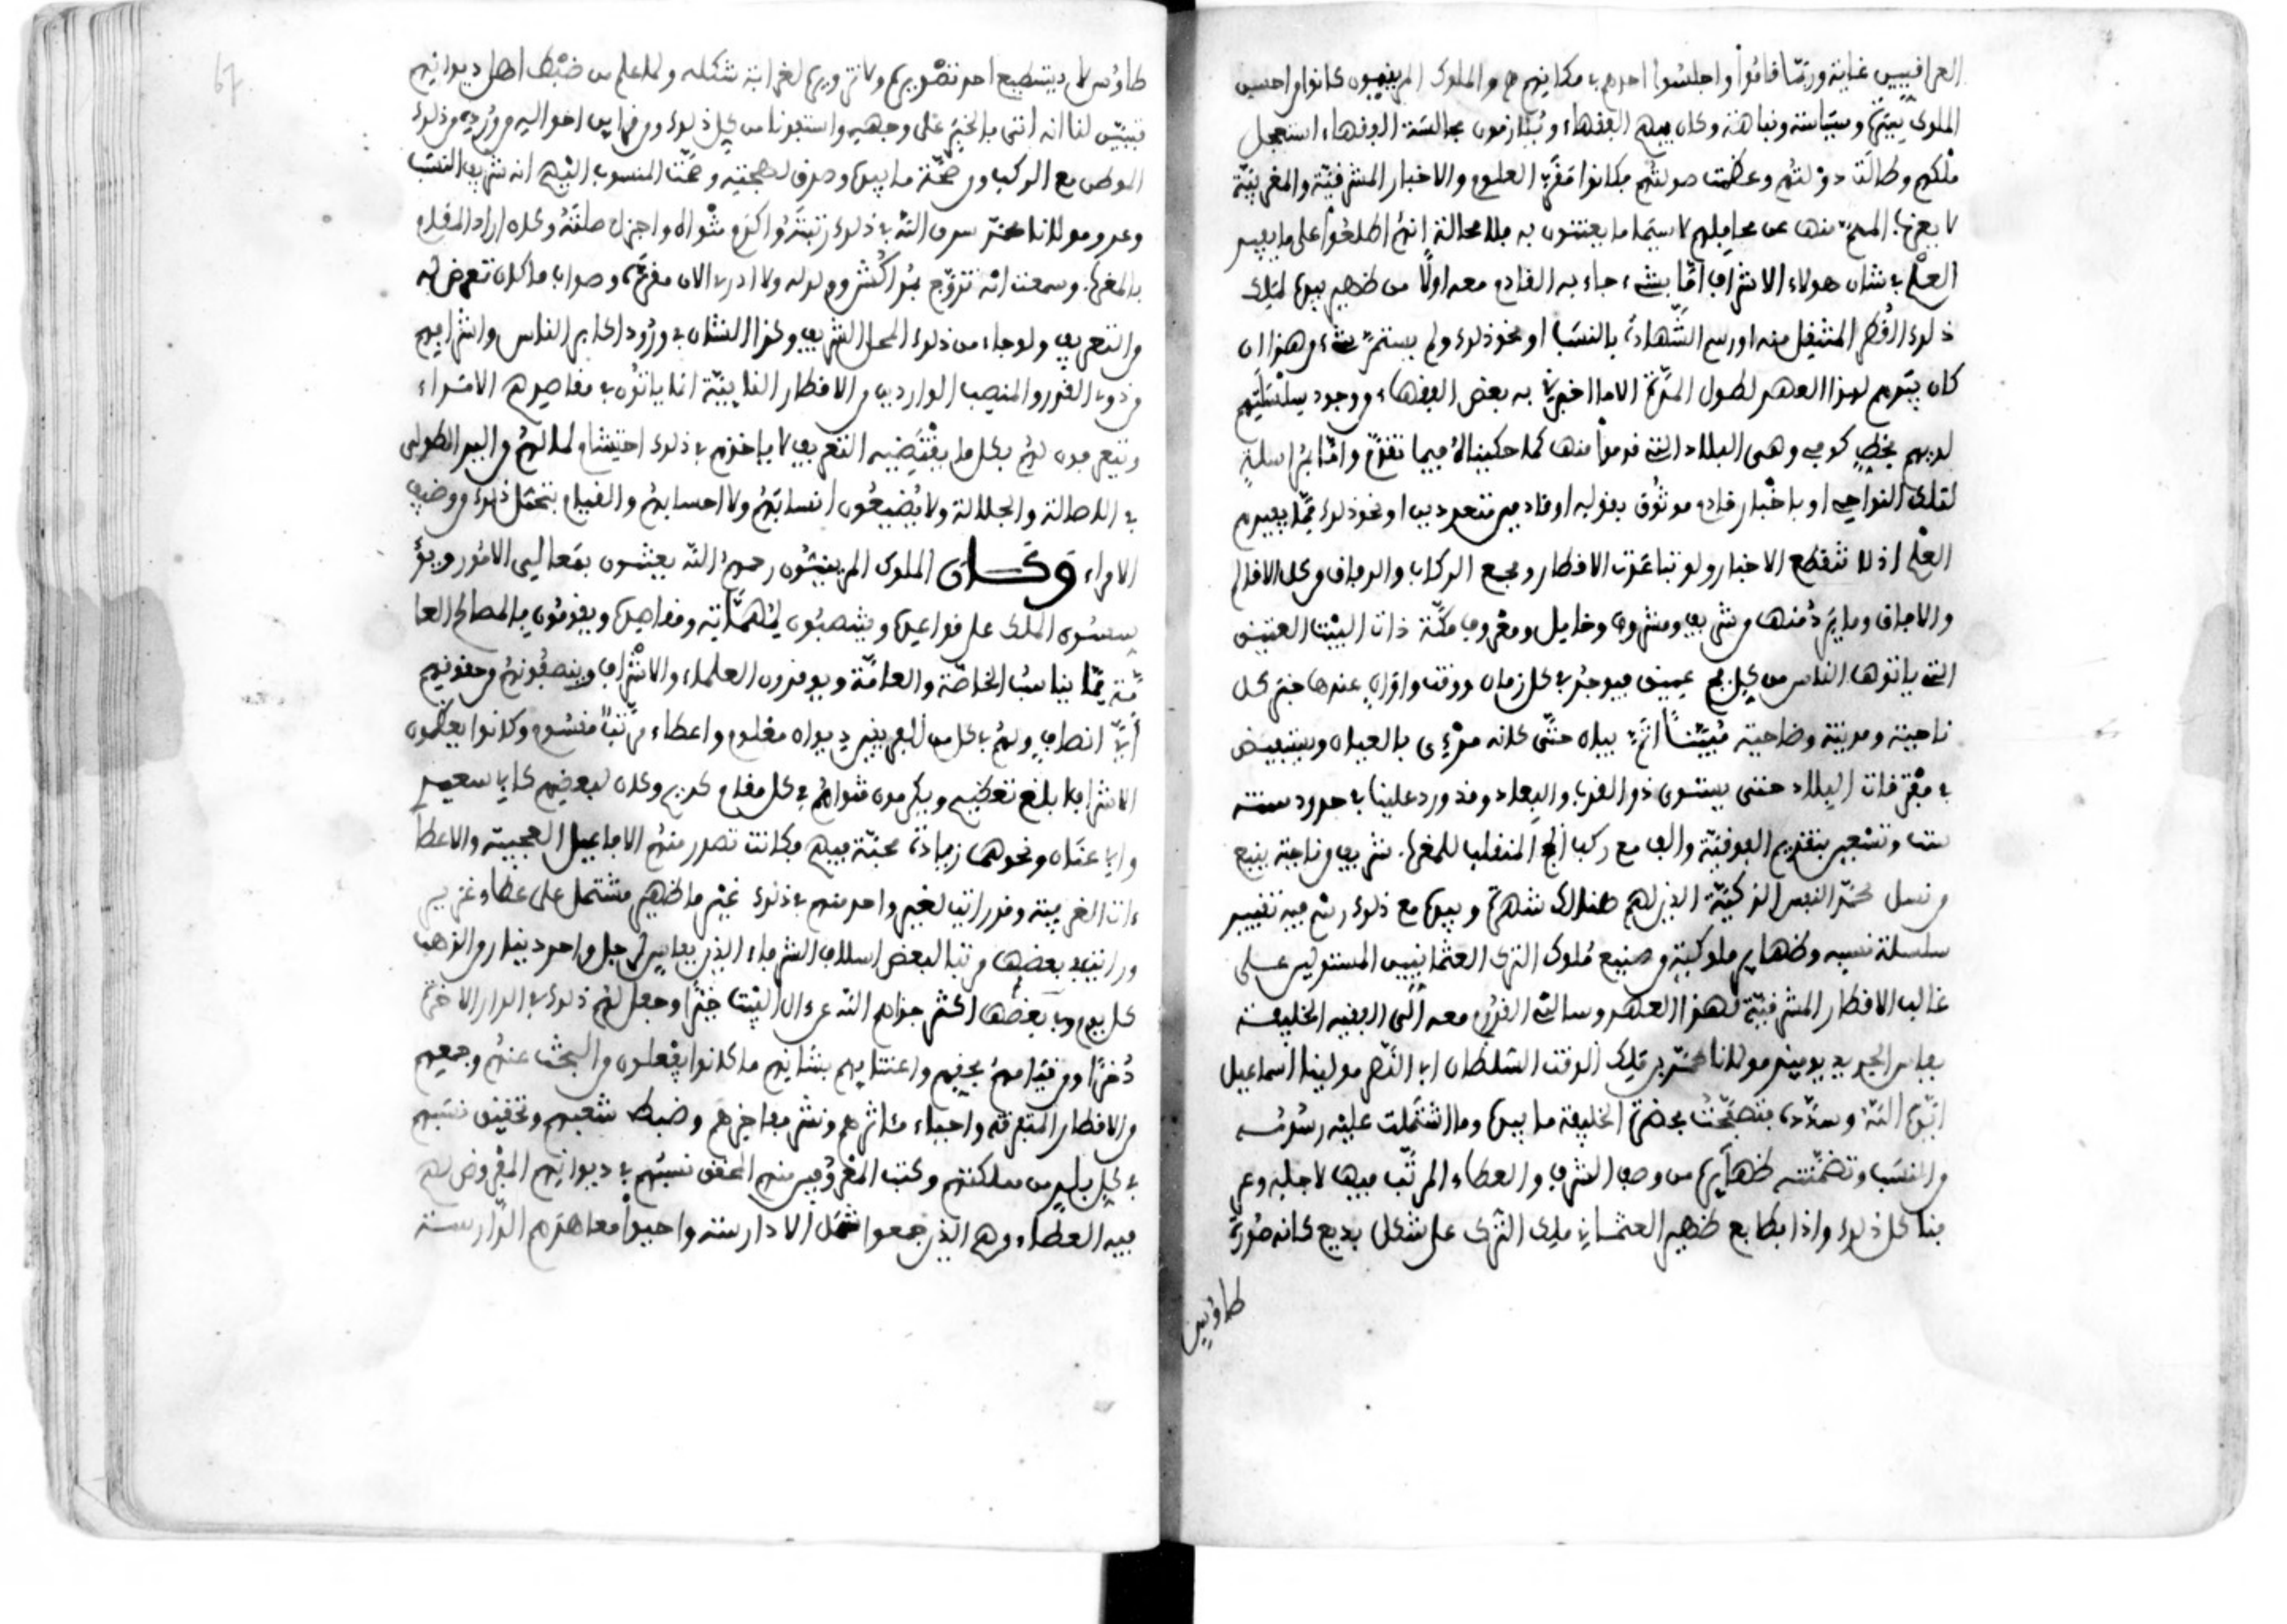 العراقيين غاية وربما قاموا واجلسوا احدهم بمكانهم هم والملوك المرينيون كانوا من احسن
الملوك سيرة وسياسة ونباهة وكان فيهم الفقهاء ويلازمون مجالسة الفقهاء استفحل
ملكهم وطالت دولتهم وعظمت صولتهم فكانوا مقر العلوم والاخبار المشرقية والمغربية
لا يعزب المهم منها عن محافلهم لاسيما ما يعتنون به فلا محالة انهم اطلعوا على ما يفيد
العلم في شان هولاء الاشراف اما بشيء جاء به القادم معه اولا من ظهير فيه لملك
ذلك القطر المنتقل منه او رسم الشهادة بالنسب او نحو ذلك ولم يستمر شيء من هذا ان
كان بيدهم لهذا العهد لطول المدة الا ما اخبرني به بعض الفقهاء من وجود سلسلتهم
لديهم بخط كوفي وهي البلاد التي قدموا منها كما حكيناه فيما تقدم واما بمراسلة
لتلك النواحي او باخبار قادم موثوق بقوله او قادمين متعددين او نحو ذلك مما يفيدهم
العلم اذ لا تنقطع الاخبار ولو تباعدت الاقطار ومجمع الركاب والرفاق من كل الاقاليم
والافاق وما يرد منها من شريف ومشروف وخامل ومعروف مكة ذات البيت العتيق
التي ياتوها الناس من كل فج عميق فيوجد في كل زمان ووقت واوان عندها خبر كل
ناحية ومدينة وضاحية مبينا اتم بيان حتى كانه مرءي بالعيان ويستفيض
في مفترقات البلاد حتى يستوي ذو القرب والبعاد وقد ورد علينا في حدود سنة
ست وتسعين بتقديم الفوقية والف مع ركب الحج المنقلب للمغرب شريف من ناحية ينبع
من نسل محمد النفس الزكية الذين لهم هنالك شهرة وبيده مع ذلك رسم فيه تقييد
سلسلة نسبه وظهاير ملوكية من صنيع ملوك الترك العثمانيين المستولين على
غالب الاقطار المشرقية لهذا العهد وسالني القدوم معه الى الفقيه الخليفة
بفاس الجديد يوميذ مولانا محمد بن ملك الوقت السلطان ابي النصر مولينا اسماعيل
ايده الله وسدده فتصفحت بحضرة الخليفة ما بيده وما اشتملت عليه رسومه
من النسب وتضمنته ظهايره من وصف الشرف والعطاء المرتب فيها لاجله وعر
فنا كل ذلك واذا بطابع ظهير العثماني ملك الترك على شكل بديع كانه صورة
طاوس
طاوس لا يستطيع احد تصويره ولا تزويره لغرابة شكله ولما علم من ضبط اهل ديوانهم
فتبين لنا انه اتى بالخبر على وجهه واستفدنا من كل ذلك ومن قراين احواله وورده من ذلك
الوطن مع الركب ومن صحة ما بيده وصدق لهجته وصحت المنسوب اليهم انه شريف النسب
وعدد مولانا محمد سدده الله في ذلك رتبته واكرم مثواه واجزل صلته وكان اراد المقام
بالمغرب وسمعت انه تزوج بمراكش وولد له ولا ادري الان مقره وصوابا ما كان تعرض له
من التعريف ولو جاء من ذلك المحل الشريف وكذا الشان في ورود اكابر الناس واشرافهم
من ذوي القدر والمنصب الواردين من الاقطار النايية انما ياتون في مقاصدهم الامراء
ويتعرفون لهم بكل ما يقتضيه التعريف لا ياخذهم في ذلك احتشام لما لهم من اليد الطولى
في الاصالة والجلالة ولا يضيعون انسابهم ولا احسابهم والقيام بتحمل ذلك من وضيف
الامراء وكان الملوك المرينيون رحمهم الله يعتنون بمعالي الامور ويؤ
سسون الملك على قواعده وينصبون لمهماته ومقاصده ويقومون بالمصالح العا
مة مما يناسب الخاصة والعامة ويوقرون العلماء والاشراف وينصفونهم من حقوقهم
اي انصاف ولهم في كل من الفريقين ديوان معلوم واعطاء مرتب مقسوم وكانوا يعظمون
الاشراف ابلغ تعظيم ويكرمون مثواهم في كل مقام كريم وكان لبعضهم كابي سعيد
وابي عنان ونحوهما زيادة محبة فيهم فكانت تصدر منهم الافاعيل العجيبة والاعطا
ءات الغريبة وقد رايت لغير واحد منهم في ذلك غير ما ظهير مشتمل على عطاء غزير
ورايت في بعضها مرتبا لبعض اسلاف الشرفاء الذين بفاس لرجل واحد دينار من الذهب
كل يوم وفي بعضها اكثر جزاهم الله عن ال البيت خيرا وجعل لهم ذلك في الدار الاخرة
ذخرا ومن قيامهم بحقهم واعتنايهم بشانهم ما كانوا يفعلون من البحث عنهم وجمعهم
من الاقطار المتفرقة واحياء مئاثرهم ونشر مفاخرهم وضبط شعبهم وتحقيق نسبهم
في كل بلد من مملكتهم وكتب المعروفين منهم المحقق نسبهم في ديوانهم المفروض لهم
فيه العطاء وهم الذين جمعوا شمل الادارسة واحيوا معاهدهم الدارسة
67